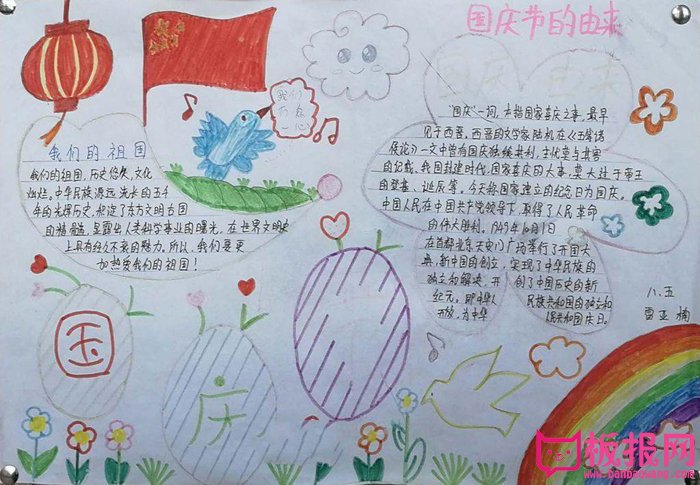 国庆节的由来
我们
万众
一心
我们的祖国
我们的祖国，历史悠久，文化
灿烂。中华民族源远流长的五千
年的光辉历史，
的精髓，呈露出人类科学事业的曙光，在世界文明史
上具有经久不衰的魅力。所以，我们要更
加热爱我们的祖国！
"国庆"一词，本指国家喜庆之事，最早
见于西晋。西晋的文学家陆机在《五等诸
侯论》一文中曾有国庆独飨其利，主忧莫与其害
的记载。我国封建时代，国家喜庆的大事，莫大过于帝王
的登基、诞辰等。今天称国家建立的纪念日为国庆。
中国人民在中国共产党领导下，取得了人民革命
的伟大胜利。1949年10月1日
在首都北京天安门广场举行了开国大
典，新中国的创立，实现了中华民族的
独立和解放，开 创了中国历史的新
纪元。即中华人 民族共和国的独立和
开放，为中华 民共和国国庆日。
八、五
国
庆
板报网
www.banbaowang.com